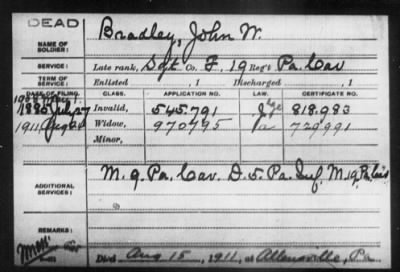 DEAD
NAME OF SOLDIER: Bradley, John W.
SERVICE: Late rank, Sgt Co. F, 19 Reg't Pa. Cav
TERM OF SERVICE: Enlisted , 1 Discharged , 1
DATE OF FILING. CLASS. APPLICATION NO. LAW. CERTIFICATE NO.
1885 July 27 Invalid, 545.791 818.983
1911 Widow, 970795 Pa 729991
Minor,
ADDITIONAL SERVICES: M. 9. Pa. Cav. D. 5. Pa. Inf. M. 19. Pa.
REMARKS:
Died Aug 15, 1911, at Allensville, Pa.